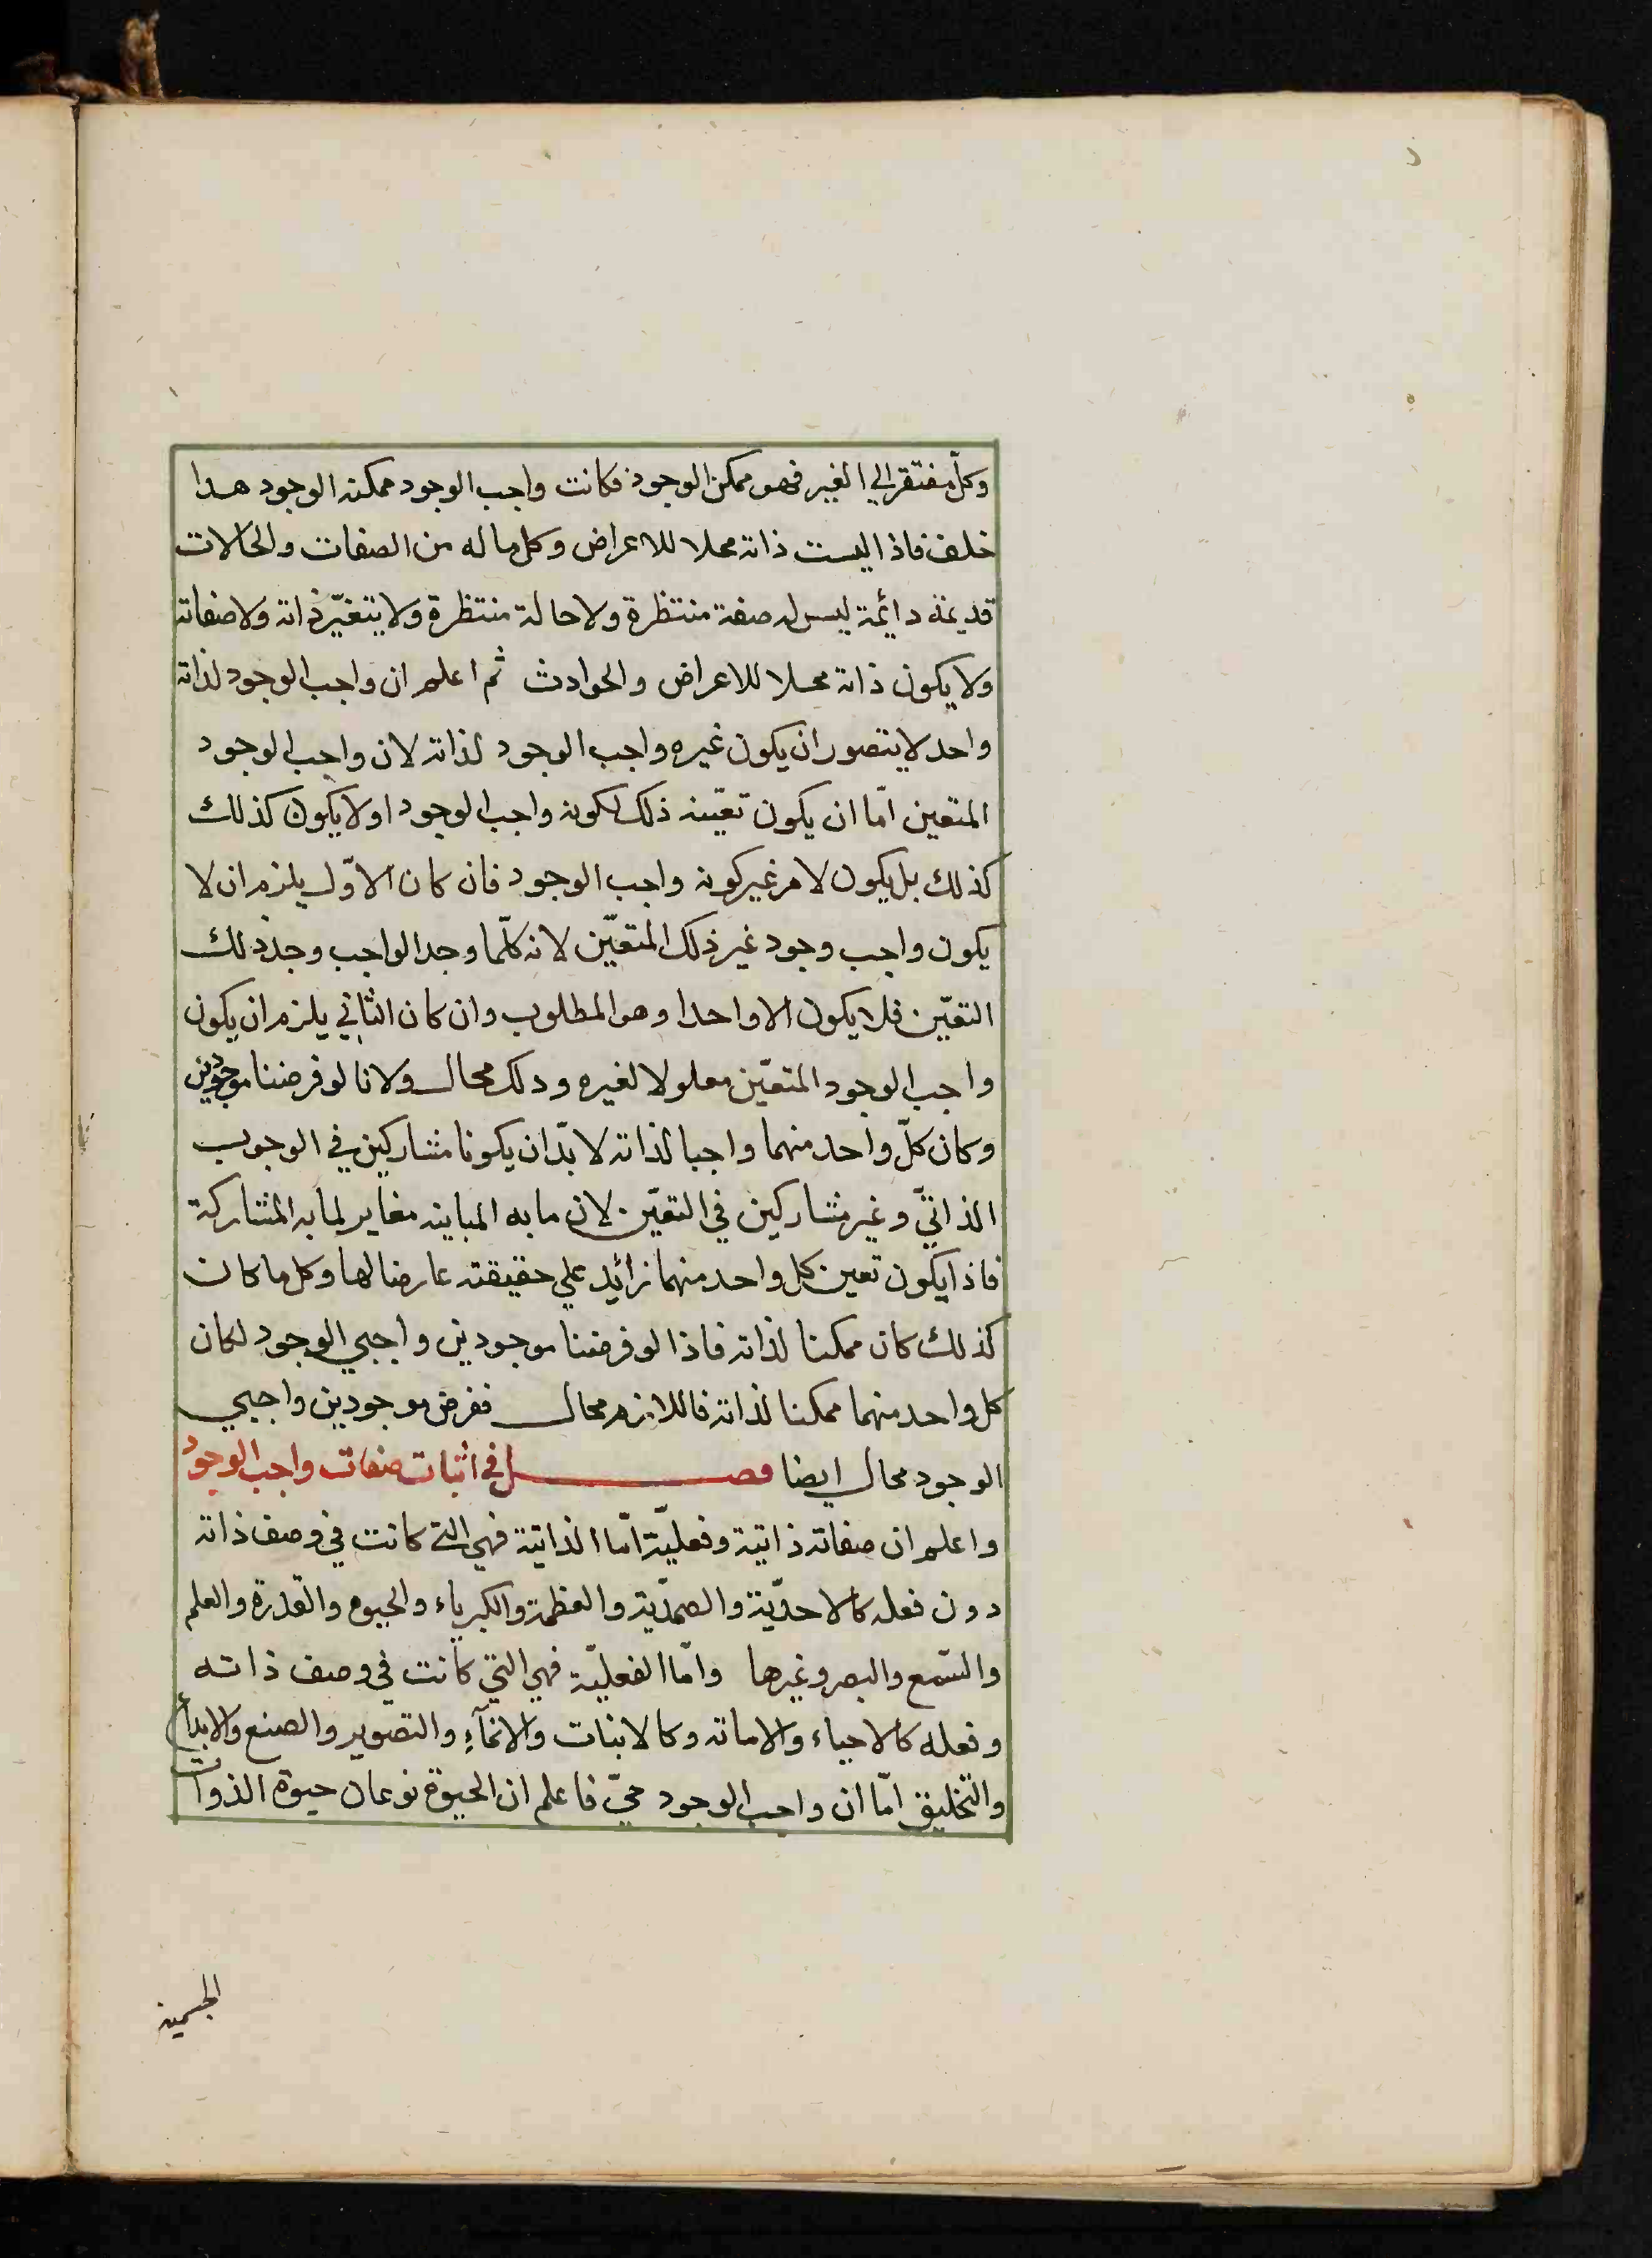 وكلّ مفتقر الي الغير فهو ممكن الوجود فكانت واجب الوجود ممكنه الوجود هذا
خلف فاذا ليست ذاته محلا للاعراض وكل ما له من الصفات والحالات
قديمة دائمة ليس له صفة منتظرة ولا حالة منتظرة ولا يتغيّر ذاته ولا صفاته
ولا يكون ذاته محلا للاعراض والحوادث ثم اعلم ان واجب الوجود لذاته
واحد لا يتصور ان يكون غيره واجب الوجود لذاته لان واجب الوجود
المتعين امّا ان يكون تعيّنه ذلك لكونه واجب الوجود او لا يكون كذلك
كذلك بل يكون لامر غير كونه واجب الوجود فان كان الاوّل يلزم ان لا
يكون واجب وجود غير ذلك المتعيّن لانه كلّما وجد الواجب وجد ذلك
التعيّن فلا يكون الا واحدا وهو المطلوب وان كان الثاني يلزم ان يكون
واجب الوجود المتعيّن معلولا لغيره وذلك محال ولانا لو فرضنا موجودين
وكان كلّ واحد منهما واجبا لذاته لا بدّ ان يكونا مشاركين في الوجوب
الذاتيّ وغير مشاركين في التعيّن لان ما به المباينه مغاير لما به المشاركة
فاذا يكون تعين كل واحد منهما زائد علي حقيقته عارضا لها وكل ما كان
كذلك كان ممكنا لذاته فاذا لو فرضنا موجودين واجبي الوجود لكان
كل واحد منهما ممكنا لذاته فاللازم محال ففرض موجودين واجبي
الوجود محال ايضا فصل في اثبات صفات واجب الوجود
واعلم ان صفاته ذاتية وفعليّة امّا الذاتية فهي التي كانت في وصف ذاته
دون فعله كالاحديّة والصمديّة والعظمة والكبرياء والحيوة والقدرة والعلم
والسّمع والبصر وغيرها وامّا الفعليّة فهي التي كانت في وصف ذاته
وفعله كالاحياء والاماته وكالانبات والانمآء والتصوير والصنع والابداع
والتخليق امّا ان واجب الوجود حيّ فاعلم ان الحيوة نوعان حيوة الذوات
الجسمية